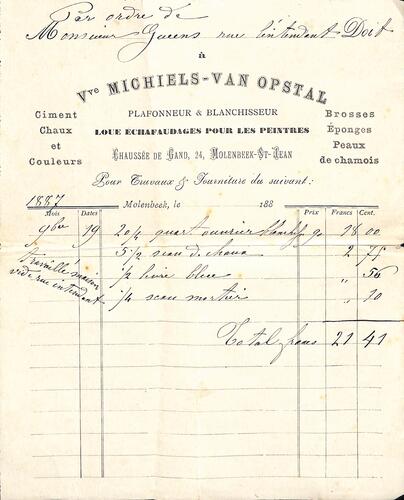 Par ordre de
Monsieur Gueens rue l'intendant Doit
à
Vve MICHIELS-VAN OPSTAL
PLAFONNEUR & BLANCHISSEUR
LOUE ECHAFAUDAGES POUR LES PEINTRES
CHAUSSÉE DE GAND, 24, MOLENBEEK-ST-JEAN
Ciment
Chaux
et
Couleurs
Brosses
Éponges
Peaux
de chamois
Pour Travaux & Fourniture du suivant:
1887 Molenbeek, le 188
Mois Dates Prix Francs Cent.
9bre 19 20/4 quart ouvrier 90 18 00
5 1/2 seau de chaux 2 75
1/2 livre bleu " 56
1/4 seau mortier " 10
Travaillé maison
vide rue intendant
Total francs 21 41